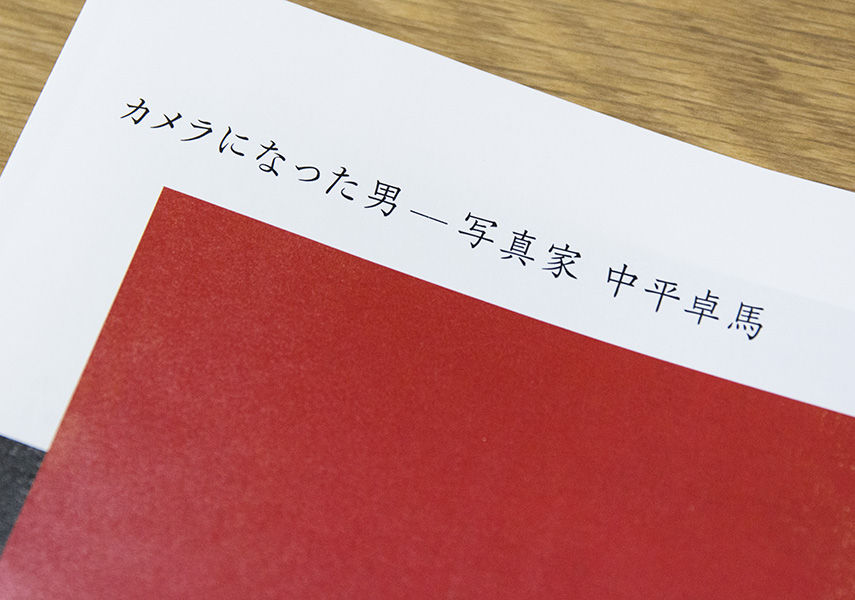 カメラになった男―写真家 中平卓馬